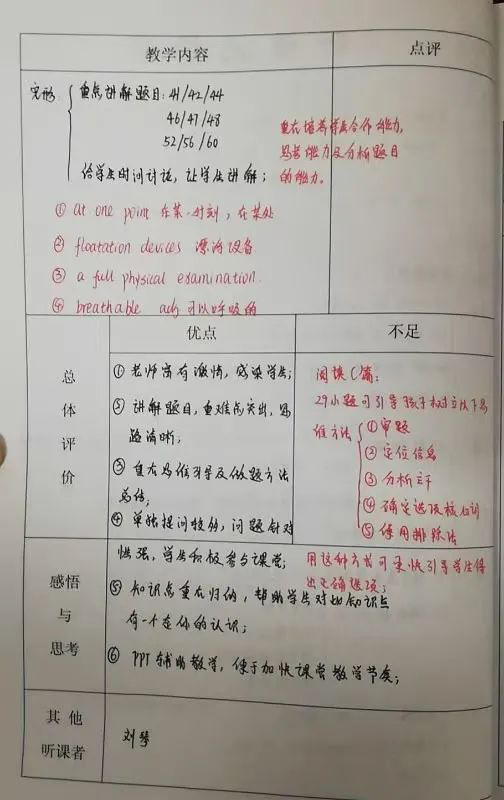 教学内容
点评
完形 重点讲解题目：41/42/44
46/47/48
52/56/60
给学生时间讨论，让学生讲解；
重在培养学生合作能力，
思考能力及分析题目
的能力。
① at one point 在某一时刻，在某处
② floatation devices 漂浮设备
③ a full physical examination.
④ breathable adj 可以呼吸的
总体评价
优点
不足
① 老师富有激情，感染学生；
② 讲解题目，重难点突出，思
路清晰；
③ 重在思维引导及做题方法
总结；
④ 单独提问较多，问题针对
性强，学生积极参与课堂；
⑤ 知识点重在归纳，帮助学生对此知识点
有一个全面的认识；
⑥ PPT辅助教学，便于加快课堂教学节奏；
阅读C篇：
29小题可引导孩子树立以下思
维方法 ① 审题
② 定位信息
③ 分析立干
④ 确定选项核心词
⑤ 使用排除法
用这种方式可更快引导学生得
出正确选项；
感悟与思考
其他听课者
刘琴